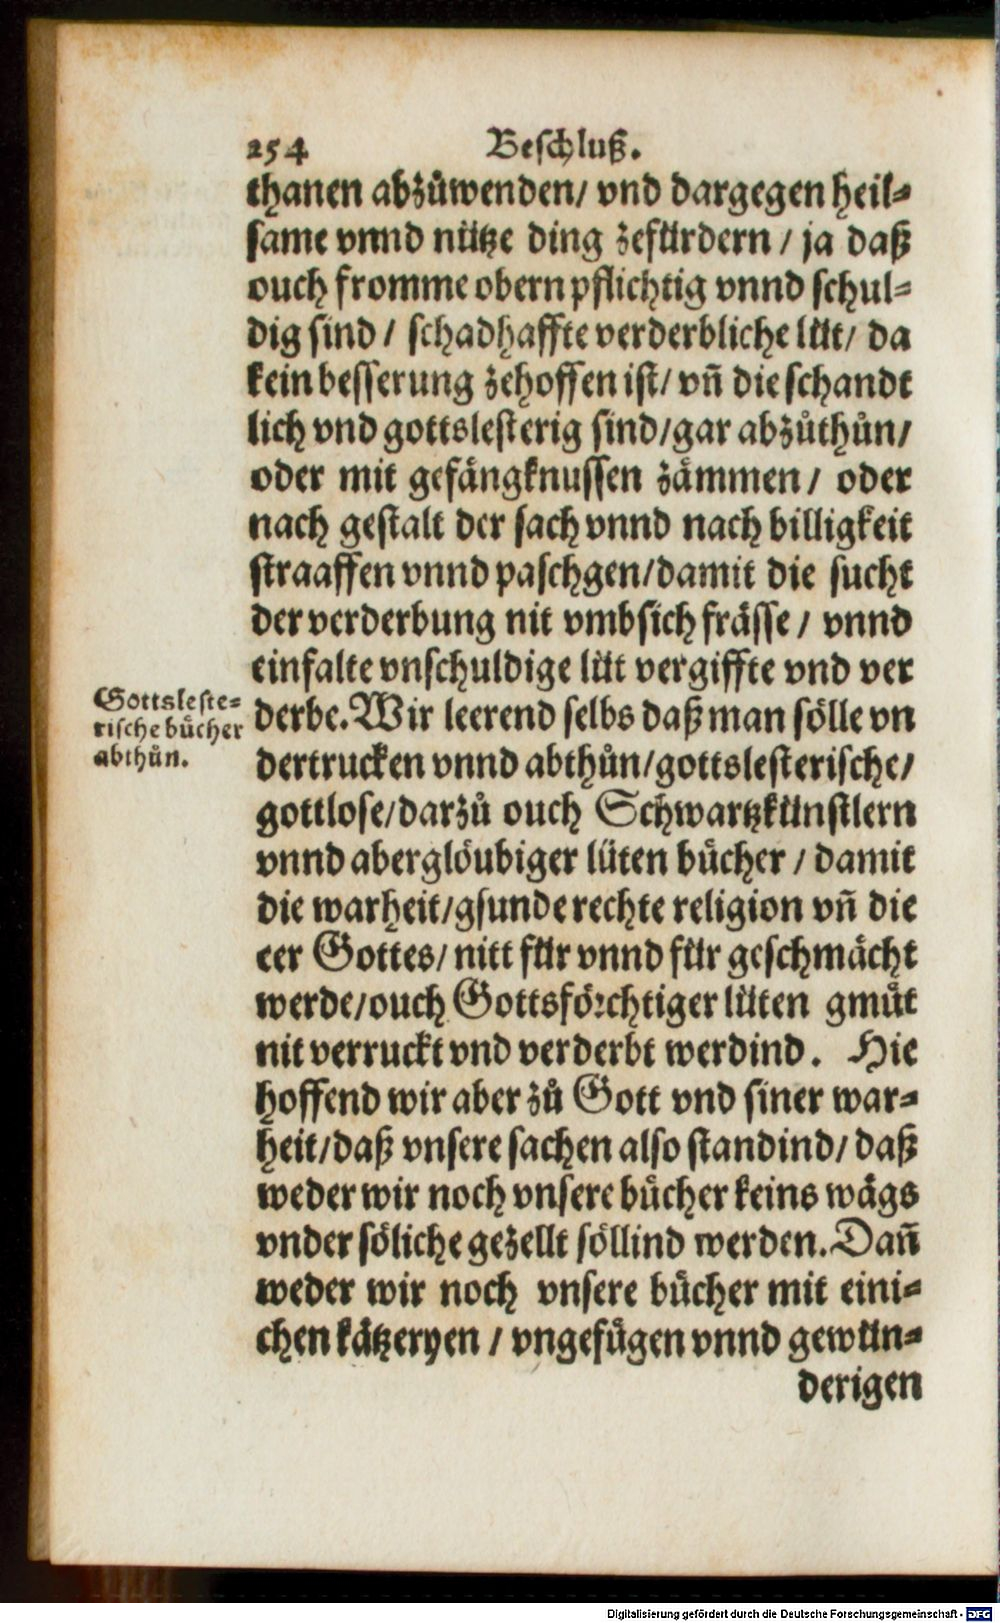 254 Beschluß.
thanen abzůwenden/ vnd dargegen heil-
same vnnd nütze ding zefürdern / ja daß
ouch fromme obern pflichtig vnnd schul-
dig sind / schadhaffte verderbliche lüt/ da
kein besserung zehoffen ist/ vñ die schandt
lich vnd gottslesterig sind/gar abzůthůn/
oder mit gefängknussen zämmen/ oder
nach gestalt der sach vnnd nach billigkeit
straaffen vnnd paschgen/damit die sucht
der verderbung nit vmbsich frässe / vnnd
einfalte vnschuldige lüt vergiffte vnd ver
derbe. Wir leerend selbs daß man sölle vn
dertrucken vnnd abthůn/gottslesterische/
gottlose/darzů ouch Schwartzkünstlern
vnnd aberglöubiger lüten bůcher / damit
die warheit/gsunde rechte religion vñ die
eer Gottes/ nitt für vnnd für geschmächt
werde/ouch Gottsförchtiger lüten gmůt
nit verruckt vnd verderbt werdind. Hie
hoffend wir aber zů Gott vnd siner war-
heit/daß vnsere sachen also standind/ daß
weder wir noch vnsere bůcher keins wägs
vnder söliche gezellt söllind werden. Dañ
weder wir noch vnsere bůcher mit eini-
chen kätzeryen / vngefůgen vnnd gewün-
derigen
Gottsleste-
rische bůcher
abthůn.
Digitalisierung gefördert durch die Deutsche Forschungsgemeinschaft - DFG